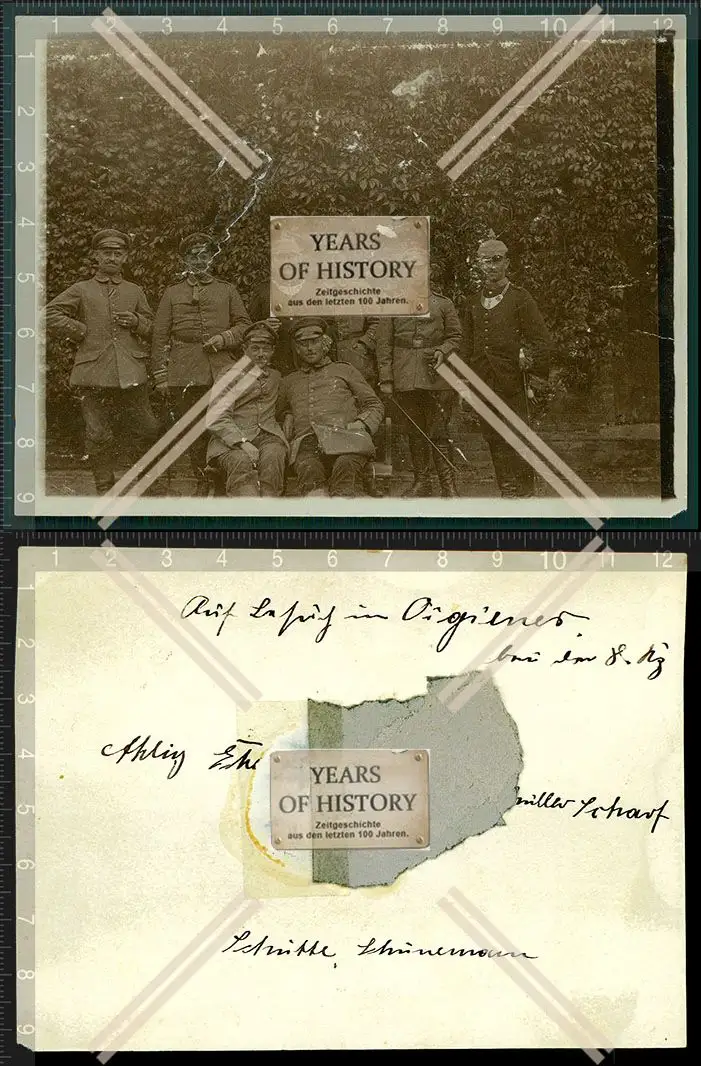 1 2 3 4 5 6 7 8 9 10 11 12
1
2
3
4
5
6
7
8
9
YEARS
OF HISTORY
Zeitgeschichte
aus den letzten 100 Jahren.
1 2 3 4 5 6 7 8 9 10 11 12
1
2
3
4
5
6
7
8
9
Auf Besuch in
bei der 8. Kp
YEARS
OF HISTORY
Zeitgeschichte
aus den letzten 100 Jahren.
müller Scharf
Schütte, Schünemann